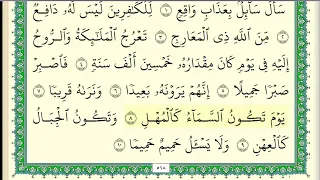 سَأَلَ سَآئِلٌۢ بِعَذَابٍ وَاقِعٍ ١ لِّلْكَٰفِرِينَ لَيْسَ لَهُۥ دَافِعٌ
٢ مِّنَ ٱللَّهِ ذِى ٱلْمَعَارِجِ ٣ تَعْرُجُ ٱلْمَلَٰٓئِكَةُ وَٱلرُّوحُ
إِلَيْهِ فِى يَوْمٍ كَانَ مِقْدَارُهُۥ خَمْسِينَ أَلْفَ سَنَةٍ ٤ فَٱصْبِرْ
صَبْرًا جَمِيلًا ٥ إِنَّهُمْ يَرَوْنَهُۥ بَعِيدًا ٦ وَنَرَىٰهُ قَرِيبًا ٧
يَوْمَ تَكُونُ ٱلسَّمَآءُ كَٱلْمُهْلِ ٨ وَتَكُونُ ٱلْجِبَالُ
كَٱلْعِهْنِ ٩ وَلَا يَسْـَٔلُ حَمِيمٌ حَمِيمًا ١٠
٥٦٨